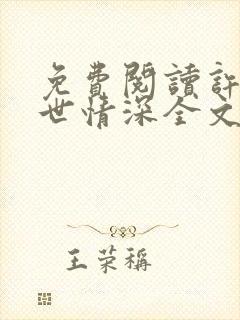 免費閱讀許
世情深全文
王荣稱